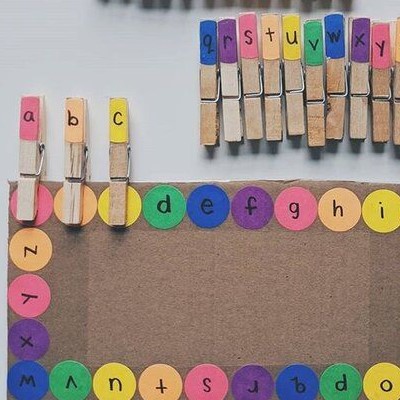 q r s t u v w x y
a b c
d e f g h i
z
y
x
w v u t s r q p o